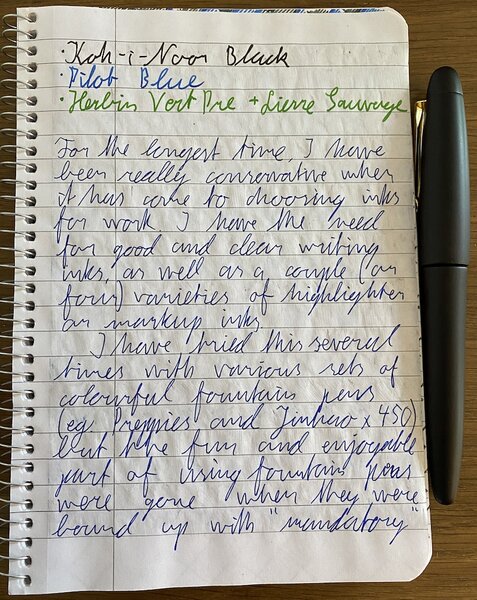 · Koh-i-Noor Black
· Pilot Blue
· Herbin Vert Pre + Lierre Sauvage
For the longest time, I have
been really conservative when
it has come to choosing inks
for work. I have the need
for good and clear writing
inks, as well as a couple (or
four) varieties of highlighter
or markup inks.
I have tried this several
times with various sets of
colourful fountain pens
(eg Preppies and Jinhao x 450)
but the fun and enjoyable
part of using fountain pens
were gone when they were
bound up with "mandatory"